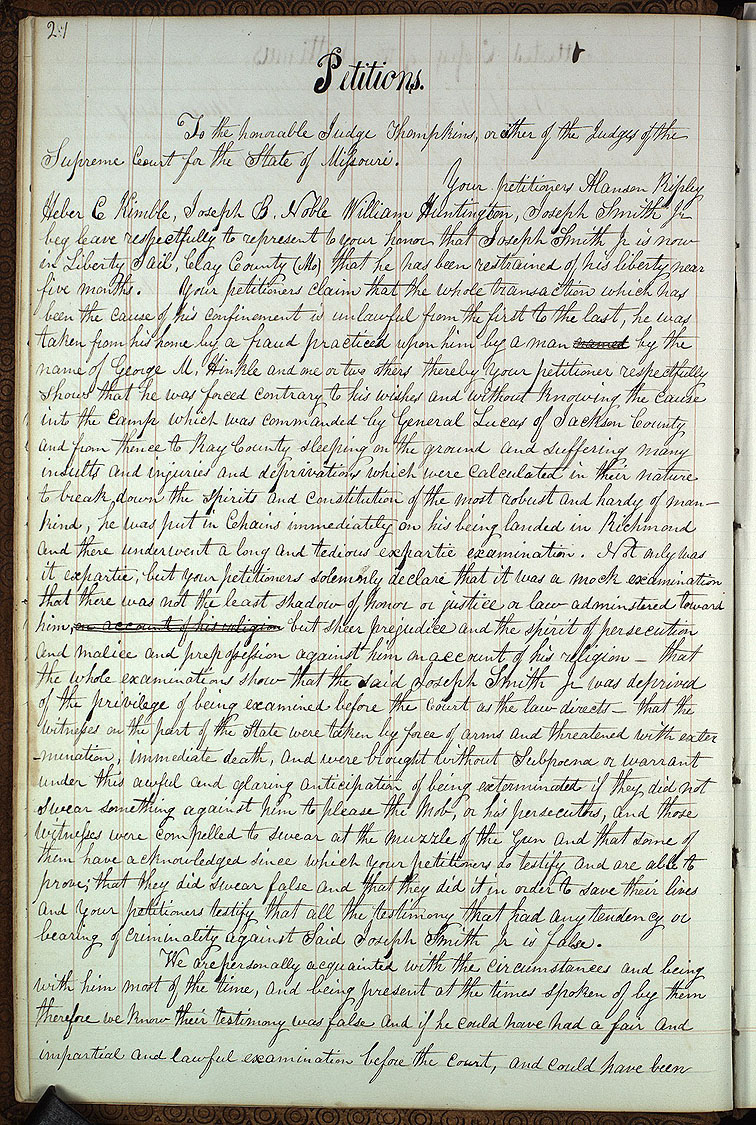 21
Petitions.
To the honorable Judge Thompkins, or either of the Judges of the
Supreme Court for the State of Missouri.
Your petitioners Alanson Ripley
Heber C Kimble, Joseph B. Noble William Huntington, Joseph Smith Jr
beg leave respectfully to represent to your honor that Joseph Smith Jr is now
in Liberty Jail, Clay County (Mo) that he has been restrained of his liberty near
five months. Your petitioners claim that the whole transaction which has
been the cause of his confinement is unlawful from the first to the last, he was
taken from his home by a fraud practiced upon him by a man named by the
name of George M. Hinkle and one or two others thereby Your petitioner respectfully
shows that he was forced contrary to his wishes and without knowing the cause
into the camp which was commanded by General Lucas of Jackson County
and from thence to Ray County sleeping on the ground and suffering many
insults and injuries and deprivations which were calculated in their nature
to break down the spirits and constitution of the most robust and hardy of man-
kind, he was put in Chains immediately on his being landed in Richmond
and there underwent a long and tedious expartie examination. Not only was
it expartie, but your petitioners solemnly declare that it was a mock examination
that there was not the least shadow of honor or justice or law adminstered toward
him, on account of his religion but sheer prejudice and the spirit of persecution
and malice and prepossession against him on account of his religion - that
the whole examinations show that the said Joseph Smith Jr was deprived
of the privilege of being examined before the Court as the law directs - that the
witnesses on the part of the State were taken by force of arms and threatened with exter
-mination, immediate death, and were brought without Subpoena or warrant
under this awful and glaring anticipation of being exterminated if they did not
swear something against him to please the Mob, or his persecutors, and those
witnesses were compelled to swear at the muzzle of the Gun and that some of
them have acknowledged since which your petitioners do testify and are able to
prove; that they did swear false and that they did it in order to save their lives
and your petitioners testify that all the testimony that had any tendency or
bearing of criminality against Said Joseph Smith Jr is false.
We are personally acquainted with the circumstances and being
with him most of the time, and being present at the times spoken of by them
therefore we know their testimony was false and if he could have had a fair and
impartial and lawful examination before the court, and could have been